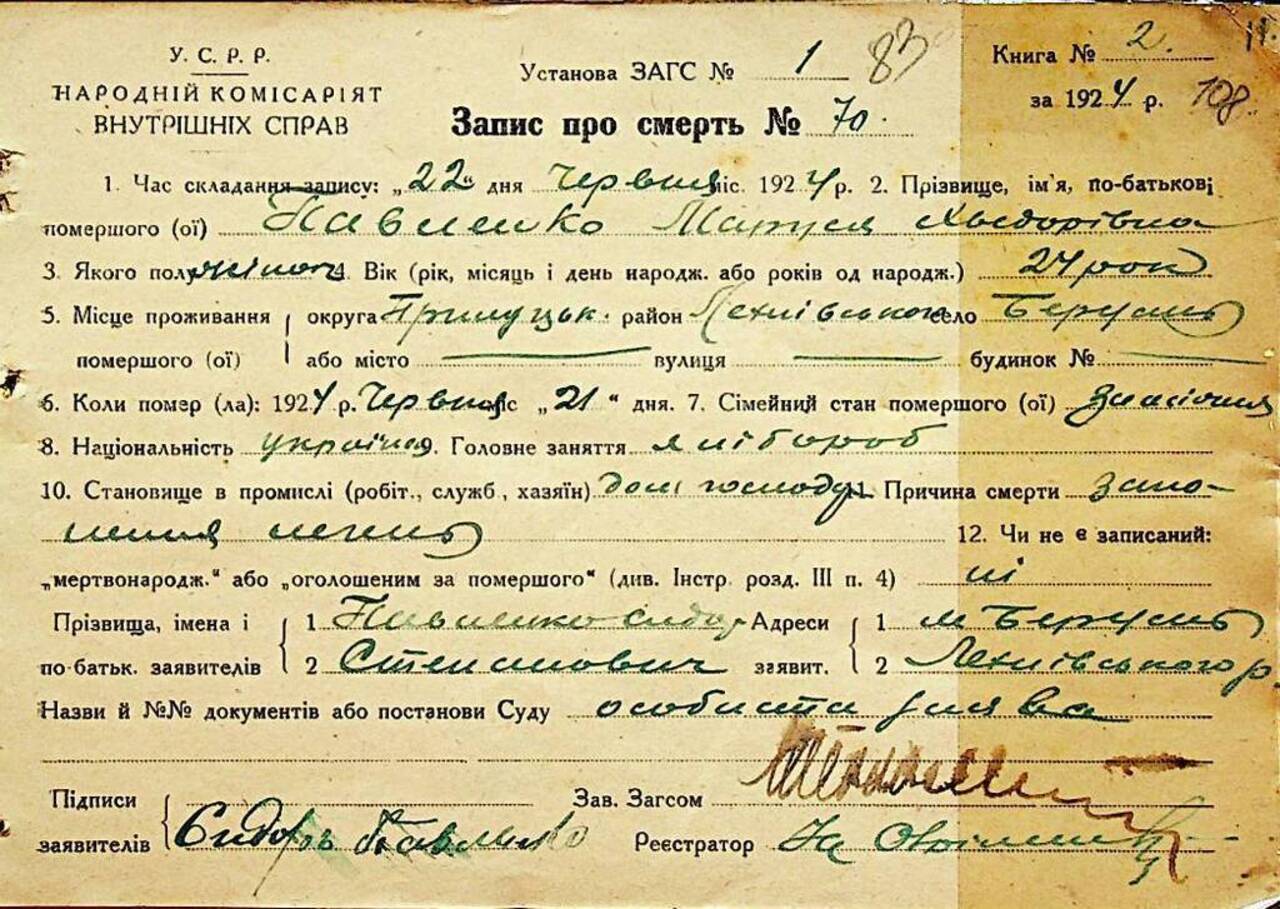 У. С. Р. Р.
НАРОДНІЙ КОМІСАРІЯТ
ВНУТРІШНІХ СПРАВ
Установа ЗАГС № 1 83
Запис про смерть № 70.
Книга № 2.
за 1924 р. 108.
1. Час складання запису: „22“ дня Червня міс. 1924 р. 2. Прізвище, ім'я, по-батькові
помершого (ої) Павленко Маруся Хведорівна
3. Якого полу жіноч 4. Вік (рік, місяць і день народж. або років од народж.) 24 рок
5. Місце проживання округа Прилуцьк. район Лехнівського село
помершого (ої) або місто вулиця будинок №
6. Коли помер (ла): 1924 р. Червня міс „21“ дня. 7. Сімейний стан помершого (ої)
8. Національність україн 9. Головне заняття хлібороб
10. Становище в промислі (робіт., служб., хазяїн) дом господ 11. Причина смерти запа-
лення легень 12. Чи не є записаний:
„мертвонародж.“ або „оголошеним за помершого“ (див. Інстр. розд. III п. 4) ні
Прізвища, імена і 1 Павленко Сидор Адреси 1 м
по батьк. заявителів 2 Степанович заявит. 2 Лехнівського р
Назви й №№ документів або постанови Суду особиста заява
Підписи Зав. Загсом
заявителів Сидоръ Павленко Реєстратор